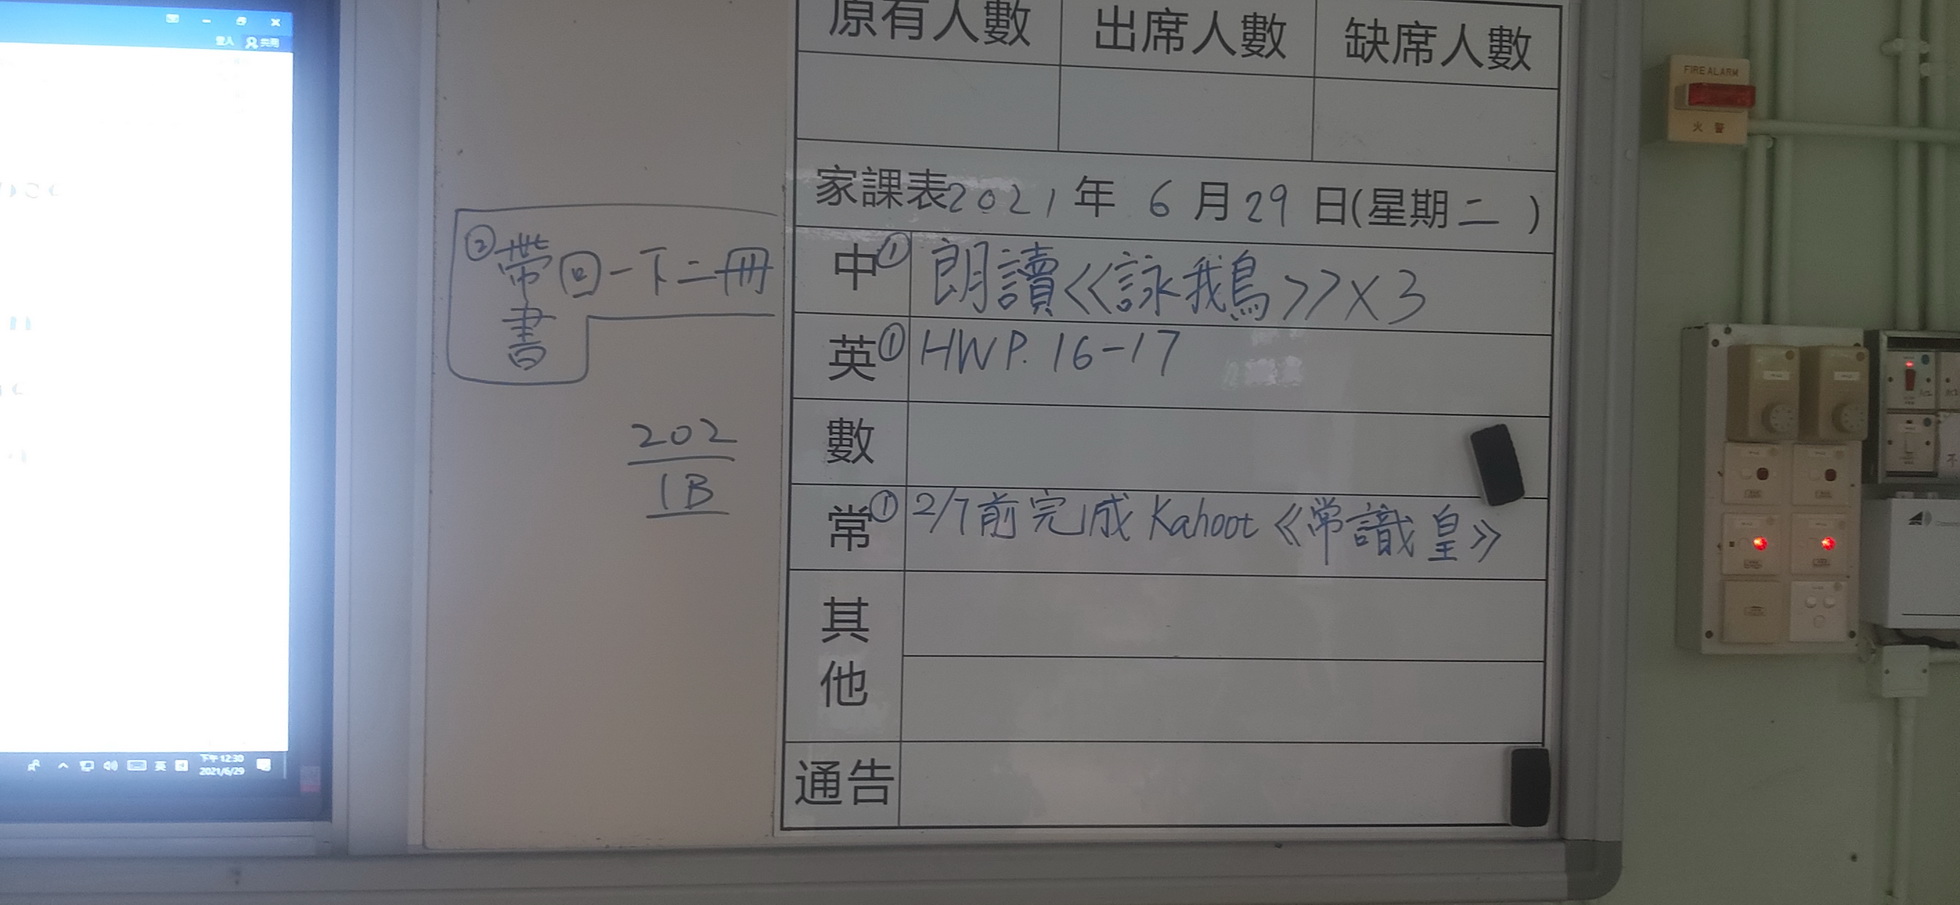 登入 共用
原有人數 出席人數 缺席人數
FIRE ALARM
火警
家課表2021年 6月29日(星期二)
②帶回一下二冊
書
中①朗讀《詠我鳥》×3
英①HWP. 16-17
202
1B
數
常①2/7前完成 Kahoot《常識皇》
其
他
通告
英
下午 12:30
2021/6/29